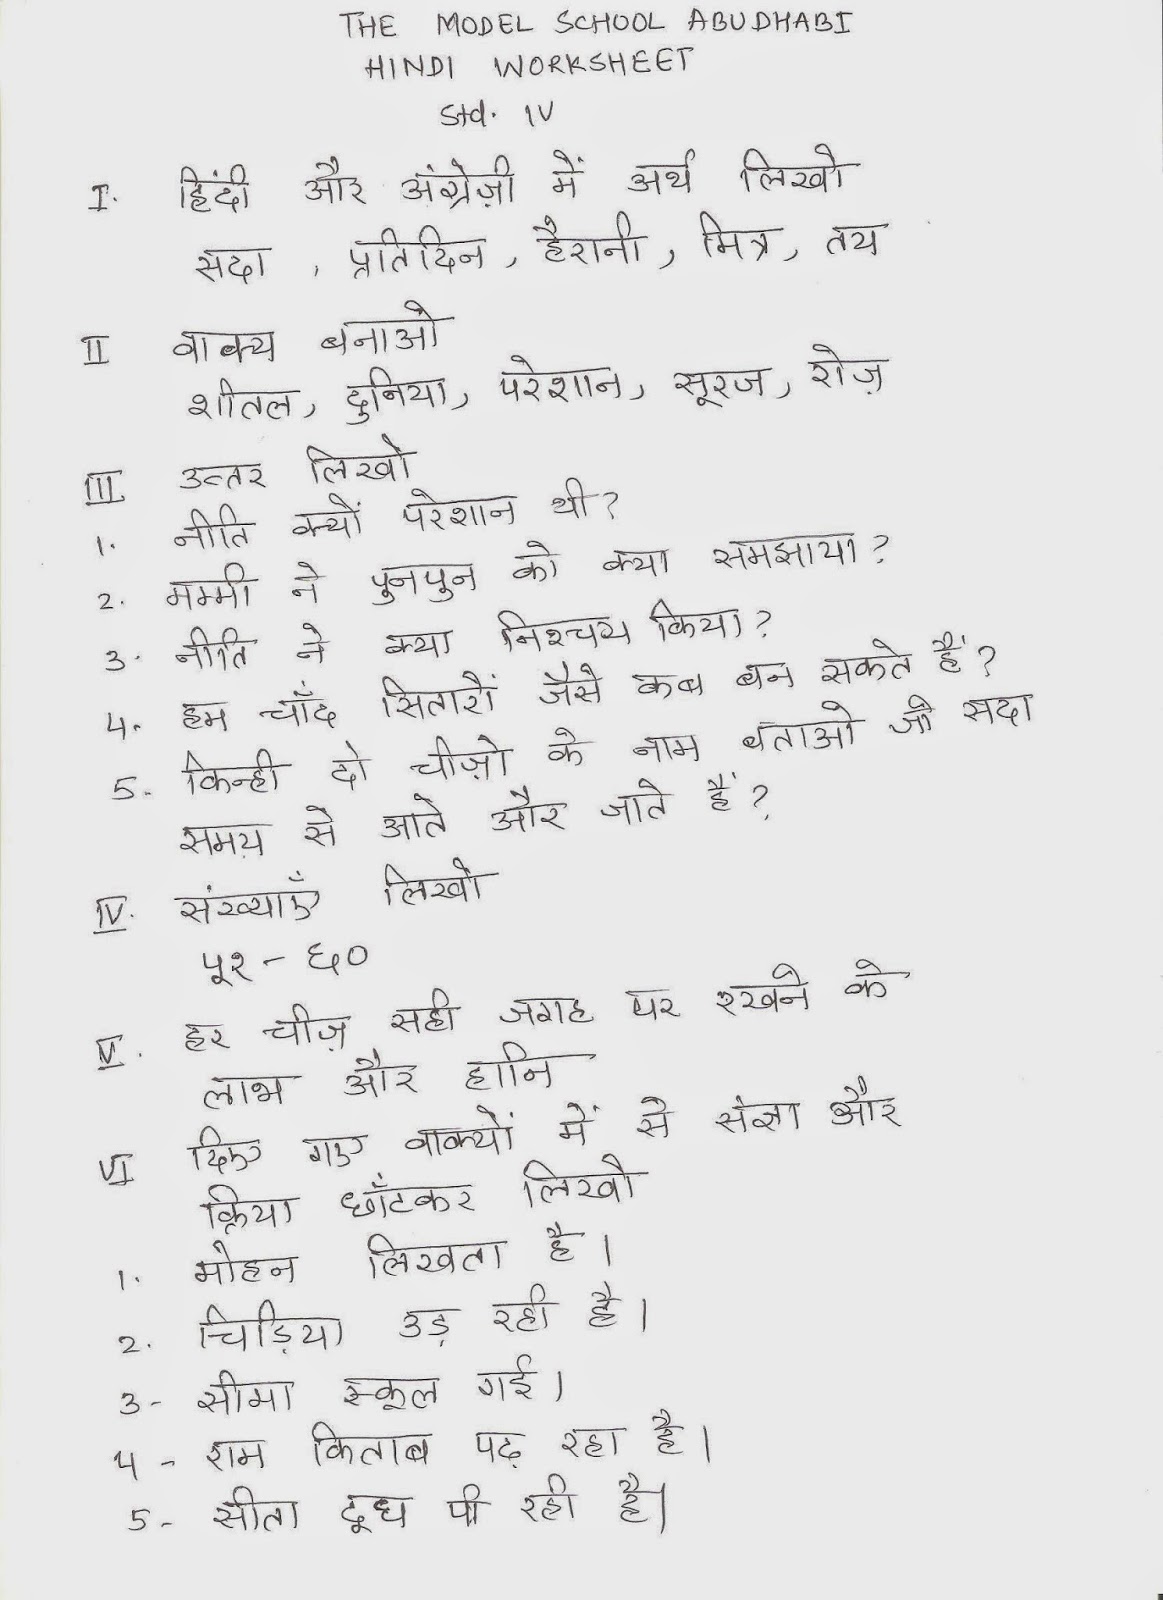 THE MODEL SCHOOL ABUDHABI
HINDI WORKSHEET
Std. IV
I. हिंदी और अंग्रेज़ी में अर्थ लिखो
सदा , प्रतिदिन , हैरानी , मित्र , तय
II वाक्य बनाओ
शीतल , दुनिया , परेशान , सूरज , रोज़
III उत्तर लिखो
1. नीति क्यों परेशान थी ?
2. मम्मी ने पुनपुन को क्या समझाया ?
3. नीति ने क्या निश्चय किया ?
4. हम चाँद सितारों जैसे कब बन सकते हैं ?
5. किन्ही दो चीज़ो के नाम बताओ जो सदा
समय़ से आते और जाते हैं ?
IV. संख्याएँ लिखो
५१ - ६०
V. हर चीज़ सही जगह पर रखने के
लाभ और हानि
VI दिए गए वाक्यों में से संज्ञा और
क्रिया छाँटकर लिखो
1. मोहन लिखता है ।
2. चिड़िया उड़ रही है ।
3 - सीमा स्कूल गई ।
4 - राम किताब पढ़ रहा है ।
5 - सीता दूध पी रही है।